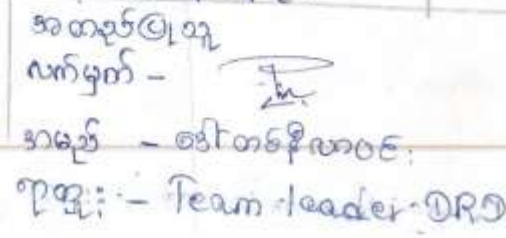 အတည်ပြုသူ
လက်မှတ် -
အမည် - ဒေါ်တစ်နီလာဝင်း
ရာထူး - Team leader DRD